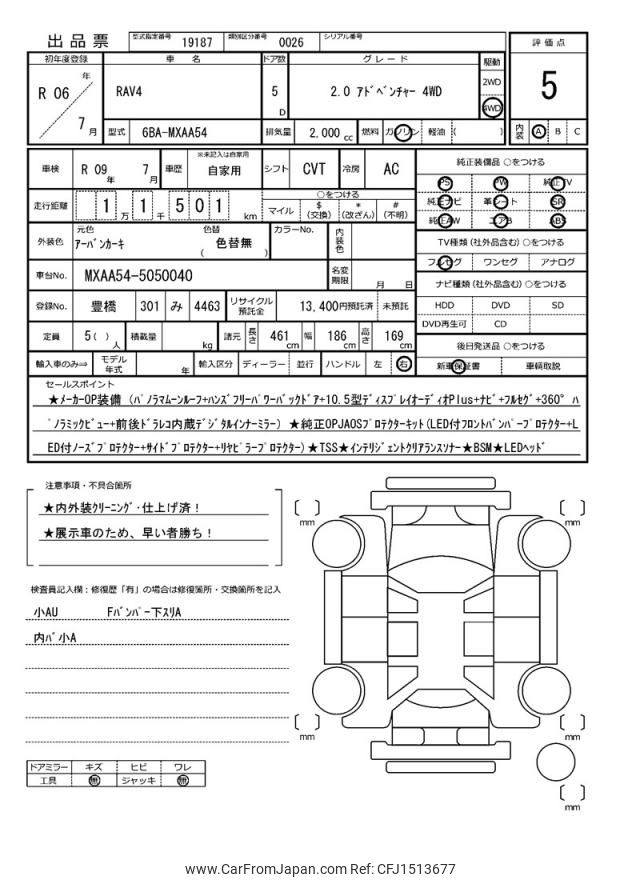 出品票 型式指定番号 19187 類別区分番号 0026 シリアル番号
初年度登録 車名 ドア数 グレード 駆動 評価点
R 06 年 7 月 RAV4 5 D 2.0 アドベンチャー 4WD 2WD 4WD 5
型式 6BA-MXAA54 排気量 2,000 cc 燃料 ガソリン 軽油 ( ) 内装 A B C
車検 R 09 年 7 月 車歴 ※未記入は自家用 自家用 シフト CVT 冷房 AC 純正装備品 ○をつける
PS PW 純正TV
走行距離 1 万 1 千 501 km ○をつける 純正ナビ 革シート SR
マイル $(交換) *(改ざん) #(不明) 純正AW エアB ABS
外装色 元色 アーバンカーキ 色替 ( 色替無 ) カラーNo. 内装色 TV種類 (社外品含む) ○をつける
フルセグ ワンセグ アナログ
車台No. MXAA54-5050040 名変期限 月 日 ナビ種類 (社外品含む) ○をつける
登録No. 豊橋 301 み 4463 リサイクル預託金 13,400円預託済 未預託 HDD DVD SD
DVD再生可 CD
定員 5( ) 人 積載量 kg 諸元 長さ 461 cm 幅 186 cm 高さ 169 cm 後日発送品 ○をつける
輸入車のみ⇨ モデル年式 年 輸入区分 ディーラー 並行 ハンドル 左 右 新車保証書 車輌取説
セールスポイント
★メーカーOP装備 (パノラマムーンルーフ+ハンズフリーパワーバックドア+10.5型ディスプレイオーディオPlus+ナビ+フルセグ+360°パ
ノラミックビュー+前後ドラレコ内蔵デジタルインナーミラー) ★純正OPJAOSプロテクターキット(LED付フロントバンパープロテクター+L
ED付ノーズプロテクター+サイドプロテクター+リヤピラープロテクター)★TSS★インテリジェントクリアランスソナー★BSM★LEDヘッド
注意事項・不具合箇所
★内外装クリーニング・仕上げ済！
★展示車のため、早い者勝ち！
検査員記入欄：修復歴「有」の場合は修復箇所・交換箇所を記入
小AU Fバンパー下スリA
内バ小A
mm mm
mm mm
mm
ドアミラー キズ ヒビ ワレ
工具 無 ジャッキ 無
www.CarFromJapan.com Ref: CFJ1513677